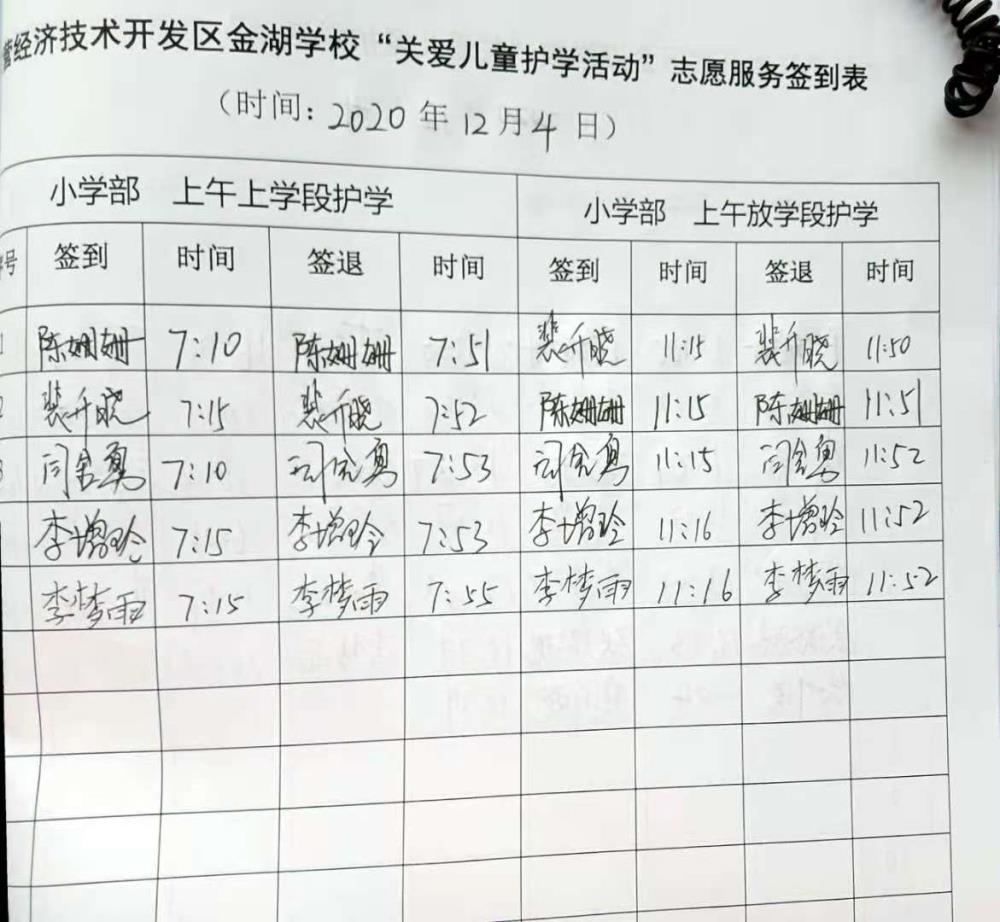 营经济技术开发区金湖学校“关爱儿童护学活动”志愿服务签到表
（时间：2020年12月4日）
小学部 上午上学段护学 小学部 上午放学段护学
序号 签到 时间 签退 时间 签到 时间 签退 时间
1 陈姗姗 7:10 陈姗姗 7:51 裴升晓 11:15 裴升晓 11:50
2 裴升晓 7:15 裴升晓 7:52 陈姗姗 11:15 陈姗姗 11:51
3 闫会勇 7:10 闫会勇 7:53 闫会勇 11:15 闫会勇 11:52
李增玲 7:15 李增玲 7:53 李增玲 11:16 李增玲 11:52
李梦雨 7:15 李梦雨 7:55 李梦雨 11:16 李梦雨 11:52